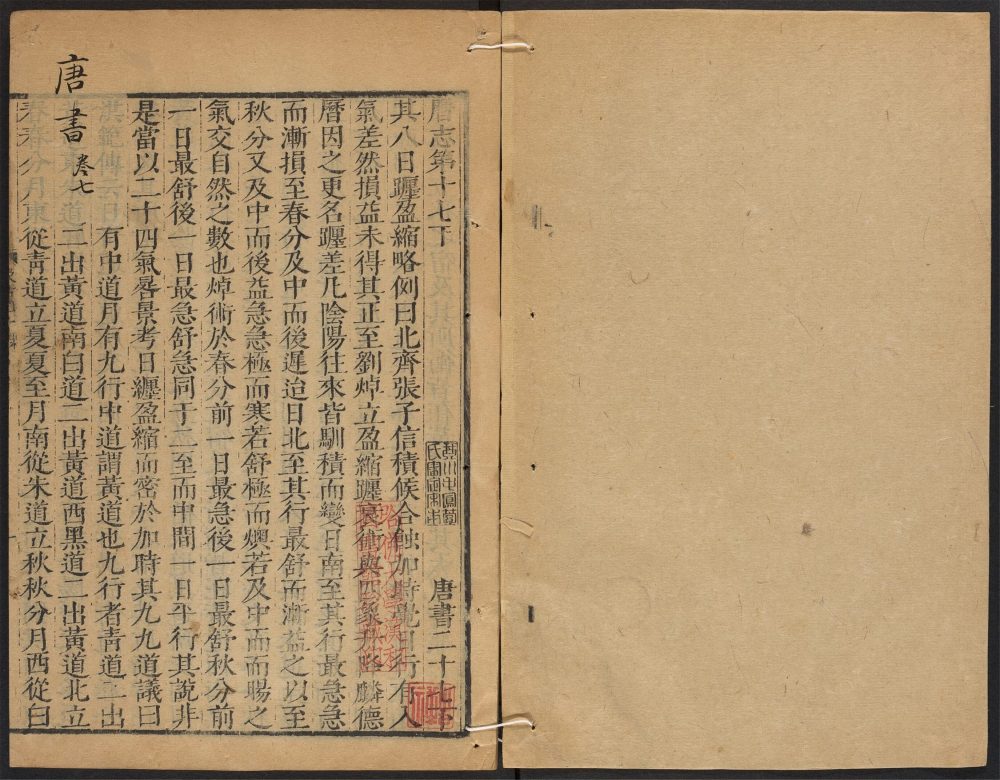 唐志第十七下 唐書二十七下
其八日躔盈縮略例曰北齊張子信積候合蝕加時覺日行有入
氣差然損益未得其正至劉焯立盈縮躔衰術與四象升降麟德
曆因之更名躔差凡陰陽往來皆馴積而變日南至其行最急急
而漸損至春分及中而後遲迨日北至其行最舒而漸益之以至
秋分又及中而後益急急極而寒若舒極而燠若及中而雨暘之
氣交自然之數也焯術於春分前一日最急後一日最舒秋分前
一日最舒後一日最急舒急同于二至而中間一日平行其說非
是當以二十四氣晷景考日纏盈縮而密於加時其九九道議曰
洪範傳云日有中道月有九行中道謂黃道也九行者青道二出
黃道東朱道二出黃道南白道二出黃道西黑道二出黃道北立
春春分月東從青道立夏夏至月南從朱道立秋秋分月西從白
唐書
卷七